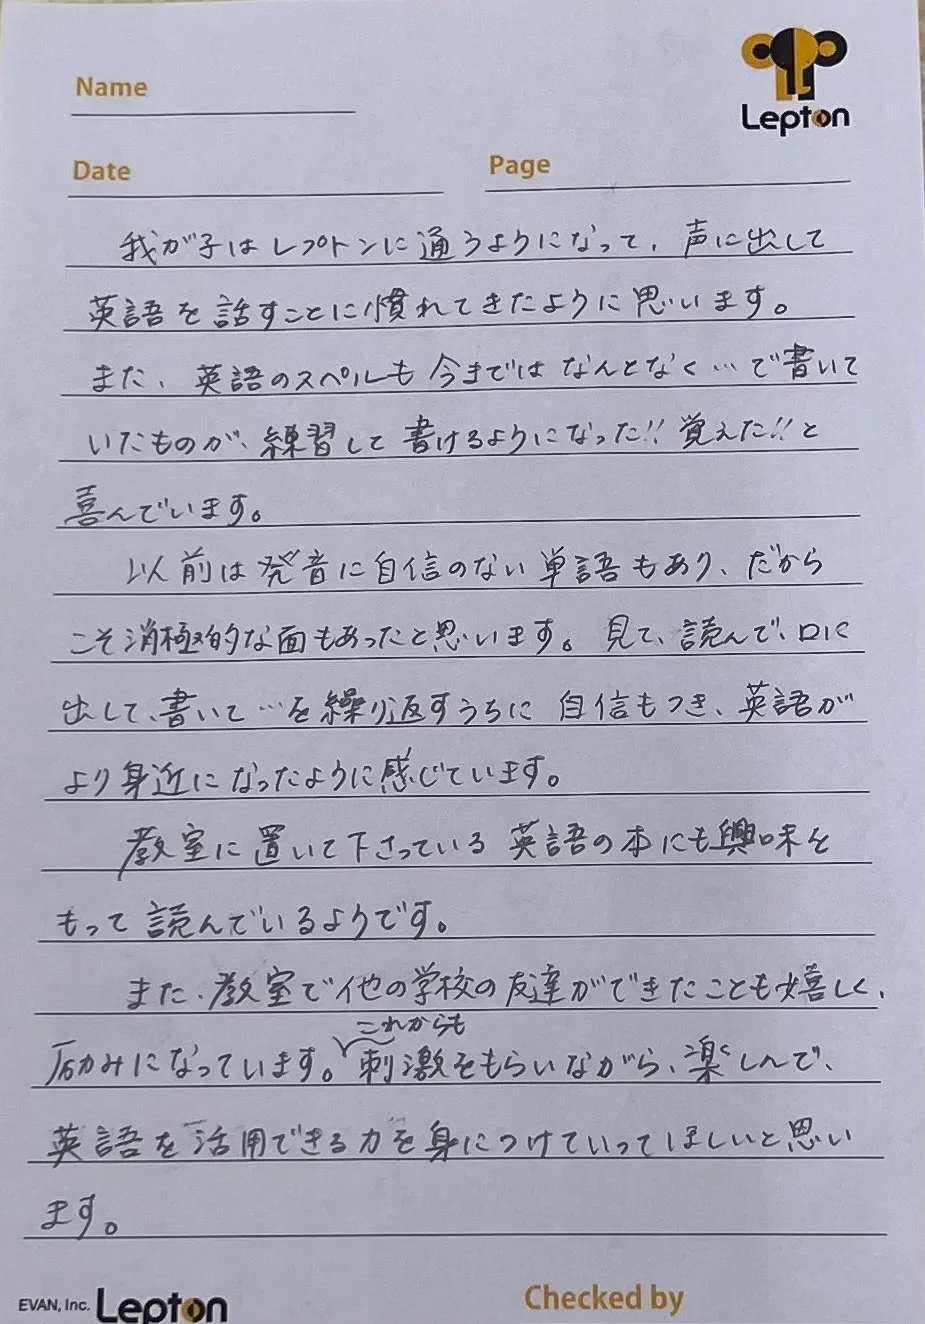 Name
Lepton
Date
Page
我が子はレプトンに通うようになって、声に出して
英語を話すことに慣れてきたように思います。
また、英語のスペルも今まではなんとなく…で書いて
いたものが、練習して書けるようになった!!覚えた!!と
喜んでいます。
以前は発音に自信のない単語もあり、だから
こそ消極的な面もあったと思います。見て、読んで、口に
出して、書いて…を繰り返すうちに自信もつき、英語が
より身近になったように感じています。
教室に置いて下さっている英語の本にも興味を
もって読んでいるようです。
また、教室で他の学校の友達ができたことも嬉しく、
これからも
励みになっています。刺激をもらいながら、楽しんで、
英語を活用できる力を身につけていってほしいと思い
ます。
EVAN, Inc. Lepton
Checked by